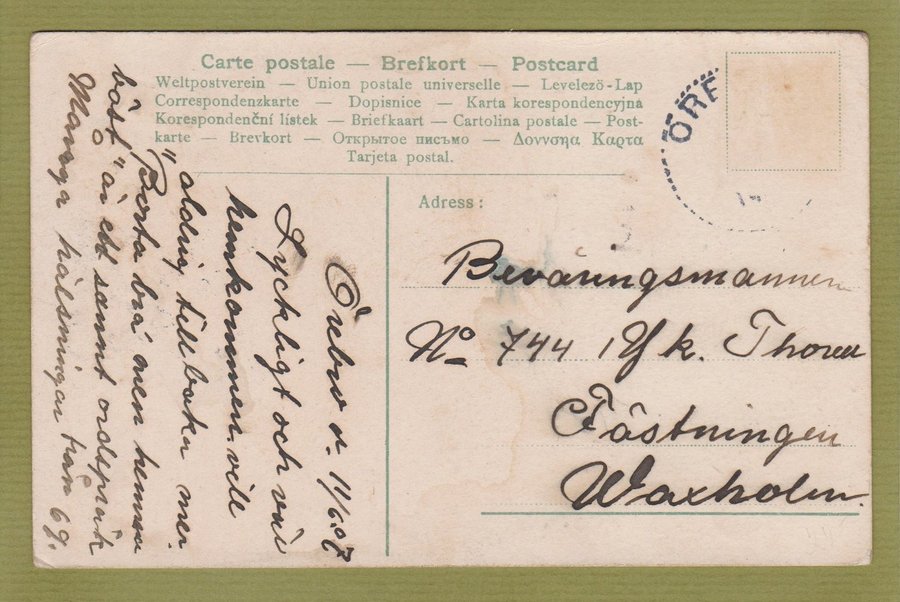 Carte postale — Brefkort — Postcard
Weltpostverein — Union postale universelle — Levelezö-Lap
Correspondenzkarte — Dopisnice — Karta korespondencyjna
Korespondenční lístek — Briefkaart — Cartolina postale — Post-
karte — Brevkort — Открытое письмо — Δουνσηα Καρτα
Tarjeta postal.
ÖRE
Adress:
Beväringsmannen
No 744 Thorell
Fästningen
Waxholm.
Örebro d. 11/6.07
Lyckligt och väl
hemkommen. vill
aldrig tillbaka mer.
"Borta bra men hemma
bäst" är ett sannt ordspråk
Många hälsningar från 69.